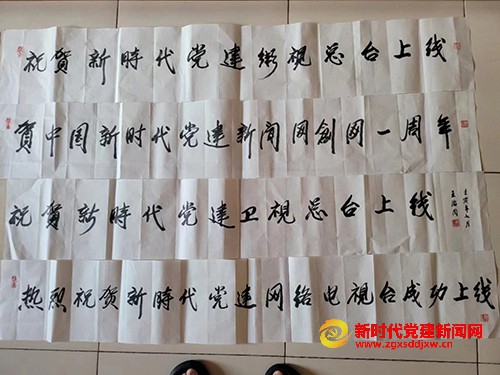 祝贺新時代党建衛視总台上线
贺中国新时代党建新闻网創网一周年
祝贺新時代党建卫視总台上线
热烈祝贺新時代党建网络电視台成功上线
新时代党建新闻网
www.zgxsddjxw.cn